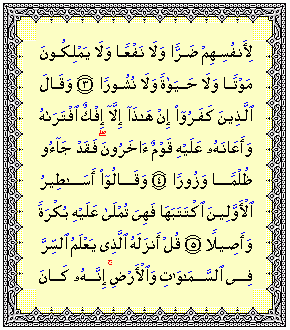 لِأَنفُسِهِمْ ضَرًّا وَلَا نَفْعًا وَلَا يَمْلِكُونَ
مَوْتًا وَلَا حَيَوٰةً وَلَا نُشُورًا ﴿٣﴾ وَقَالَ
ٱلَّذِينَ كَفَرُوٓا۟ إِنْ هَـٰذَآ إِلَّآ إِفْكٌ ٱفْتَرَىٰهُ
وَأَعَانَهُۥ عَلَيْهِ قَوْمٌ ءَاخَرُونَ ۖ فَقَدْ جَآءُو
ظُلْمًا وَزُورًا ﴿٤﴾ وَقَالُوٓا۟ أَسَـٰطِيرُ
ٱلْأَوَّلِينَ ٱكْتَتَبَهَا فَهِىَ تُمْلَىٰ عَلَيْهِ بُكْرَةً
وَأَصِيلًا ﴿٥﴾ قُلْ أَنزَلَهُ ٱلَّذِى يَعْلَمُ ٱلسِّرَّ
فِى ٱلسَّمَـٰوَٰتِ وَٱلْأَرْضِ ۚ إِنَّهُۥ كَانَ